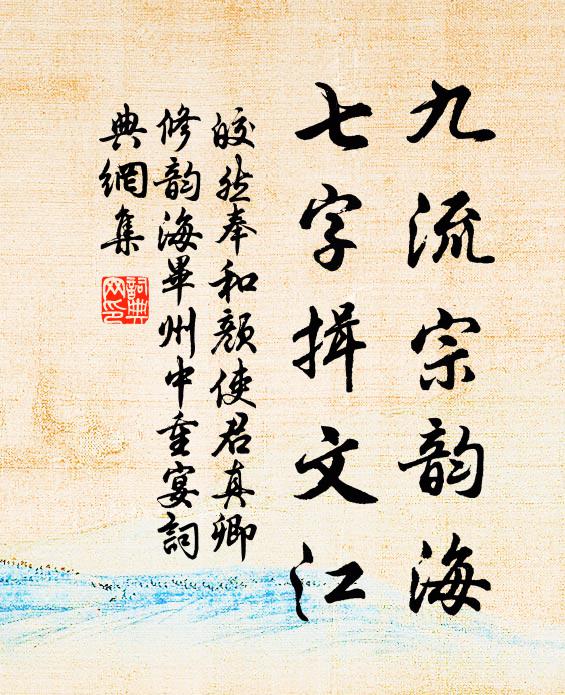 九流宗韵海
七字揖文江
皎然奉和颜使君真卿
修韵海畢州中重宴詞
典網集
詞典网印